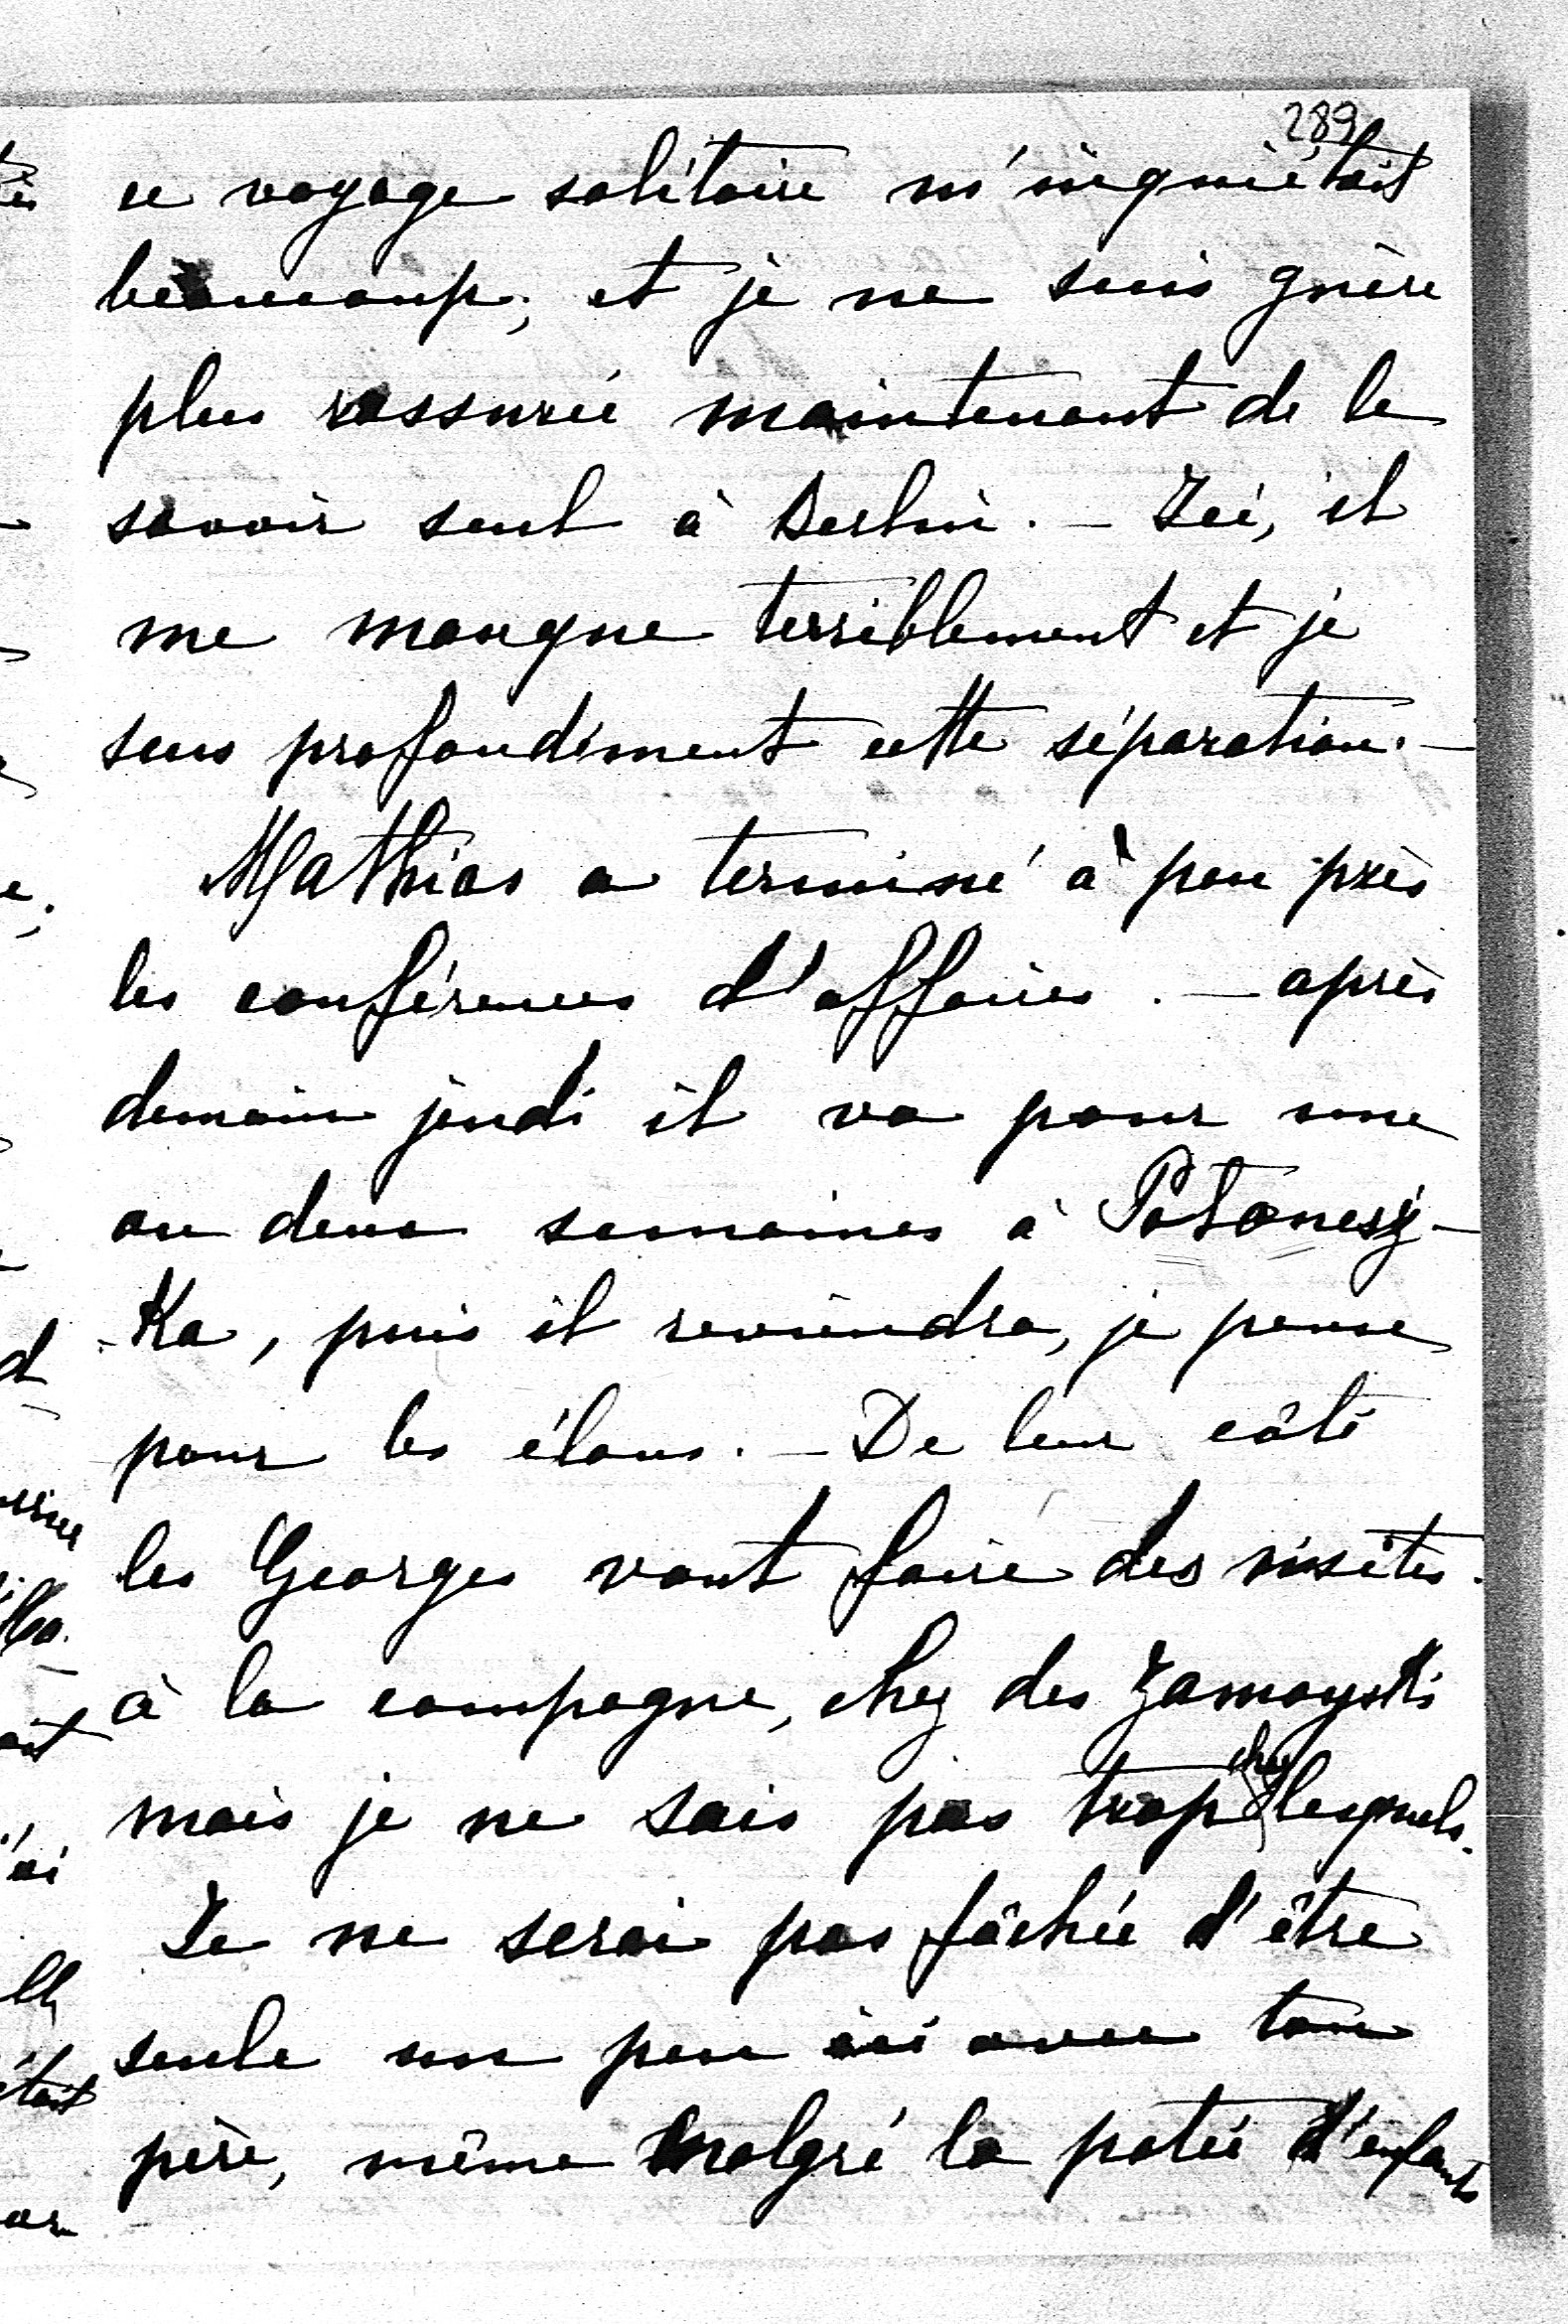 289
ce voyage solitaire m'inquiétait
beaucoup; et je ne suis guère
plus rassurée maintenant de le
savoir seul à Berlin. – Ici, il
me manque terriblement et je
sens profondément cette séparation. –
Mathias a terminé à peu près
les conférences d'affaires. – après
demain jeudi il va pour une
ou deux semaines à
-ka, puis il reviendra, je pense
pour les élans. – De leur côté
les Georges vont faire des visites
à la campagne, chez des Zamoyski
mais je ne sais pas trop chez lesquels.
Je ne serai pas fâchée d'être
seule un peu ici avec ton
père, même malgré la potée d'enfants